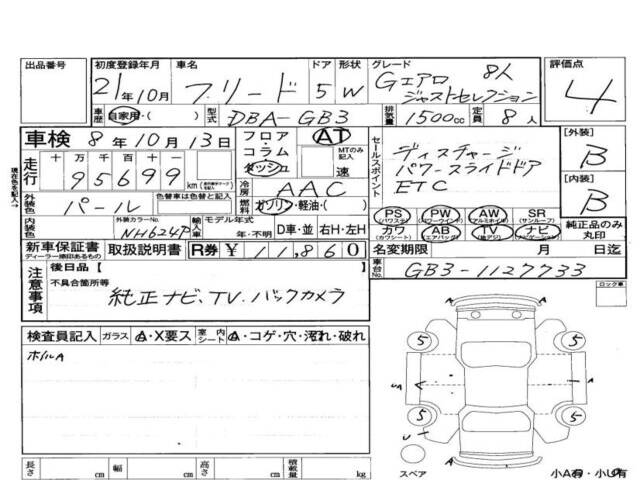 出品番号 初度登録年月 車名 ドア 形状 グレード 評価点
21年10月 フリード 5 W Gエアロ 8人
ジャストセレクション
4
車歴 自家用・( ) 型式 DBA-GB3 排気量 1500cc 定員 8人
車検 8年10月13日 フロア コラム ダッシュ AT MTのみ記入 速
セールスポイント ディスチャージ
パワースライドドア
ETC
[外装] B
[内装] B
走行 十万 万 千 百 十
95699 km
冷房 AAC
燃料 ガソリン・軽油・( )
外装色 パール 色替車は色替前と色替後を記入
内装色 外装カラーNo. NH624P 輸入車 モデル年式 年・不明 D車・並 右H・左H
PS (パワステ) PW (パワーウインド) AW (アルミホイル) SR (サンルーフ)
カワ (カワシート) AB (エアバッグ) TV (地デジ) ナビ
純正品のみ丸印
新車保証書 ディーラー捺印あるもの 取扱説明書 R券 ¥11,860
名変期限 月 日迄
車台No. GB3-1127733
注意事項 後日品[ ]
不具合箇所等
純正ナビ、TV、バックカメラ
ロック車
検査員記入 ガラス A・X要ス 室内シート A・コゲ・穴・汚れ・破れ
ホイルA
現在色を記入→
A A
5 5
UA A
5 5
U
スペア
A
小A有・小U有
長さ cm 幅 cm 高さ cm 積載量 kg